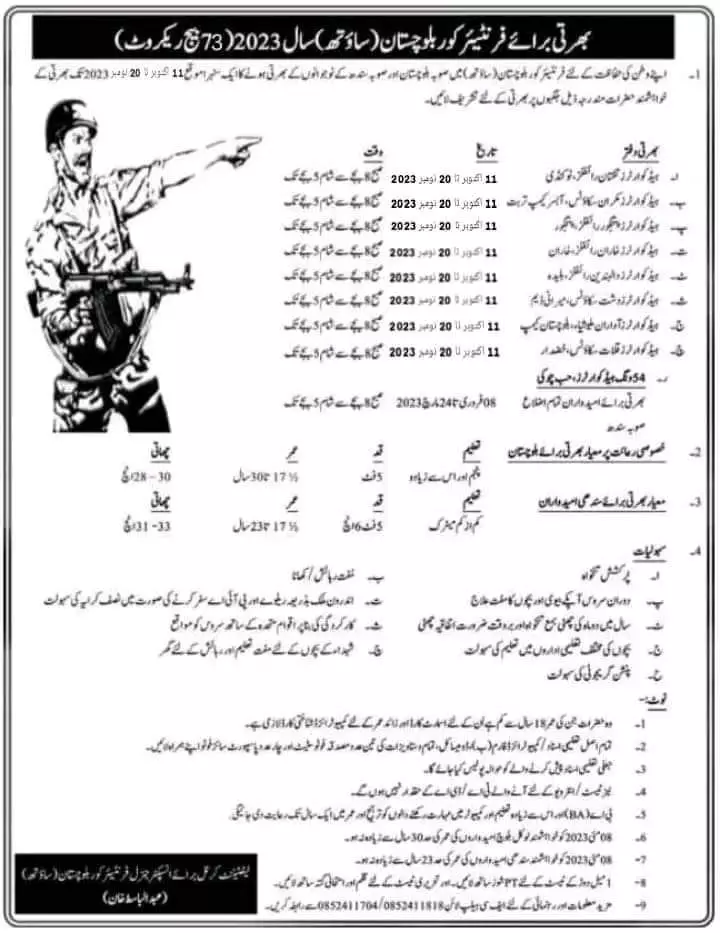 بھرتی برائے فرنٹیئر کور بلوچستان (ساؤتھ) سال 2023 (73 بیچ ریکروٹ)
1۔ اپنے وطن کی حفاظت کے لئے فرنٹیئر کور بلوچستان (ساؤتھ) میں صوبہ بلوچستان اور صوبہ سندھ کے نوجوانوں کے بھرتی ہونے کا ایک سنہرا موقع 11 اکتوبر تا 20 نومبر 2023 تک بھرتی کے
خواہشمند حضرات مندرجہ ذیل جگہوں پر بھرتی کے لئے تشریف لائیں۔
بھرتی دفتر تاریخ وقت
ا۔ ہیڈکوارٹرز تفتان رائفلز، نوکنڈی 11 اکتوبر تا 20 نومبر 2023 صبح 8 بجے سے شام 5 بجے تک
ب۔ ہیڈکوارٹرز مکران سکاؤٹس، آبسر کیمپ تربت 11 اکتوبر تا 20 نومبر 2023 صبح 8 بجے سے شام 5 بجے تک
پ۔ ہیڈکوارٹرز پنجگور رائفلز، پنجگور 11 اکتوبر تا 20 نومبر 2023 صبح 8 بجے سے شام 5 بجے تک
ت۔ ہیڈکوارٹرز خاران رائفلز، خاران 11 اکتوبر تا 20 نومبر 2023 صبح 8 بجے سے شام 5 بجے تک
ٹ۔ ہیڈکوارٹرز دالبندین رائفلز، بلیدہ 11 اکتوبر تا 20 نومبر 2023 صبح 8 بجے سے شام 5 بجے تک
ث۔ ہیڈکوارٹرز دشت سکاؤٹس، میرانی ڈیم 11 اکتوبر تا 20 نومبر 2023 صبح 8 بجے سے شام 5 بجے تک
ج۔ ہیڈکوارٹرز آواران ملیشیاء، بلوچستان کیمپ 11 اکتوبر تا 20 نومبر 2023 صبح 8 بجے سے شام 5 بجے تک
چ۔ ہیڈکوارٹرز قلات سکاؤٹس، خضدار 11 اکتوبر تا 20 نومبر 2023 صبح 8 بجے سے شام 5 بجے تک
ر۔ 54 ونگ ہیڈکوارٹرز، حب چوکی
بھرتی برائے امیدواران تمام اضلاع 08 فروری تا 24 مارچ 2023 صبح 8 بجے سے شام 5 بجے تک
صوبہ سندھ
2۔ خصوصی رعائت پر معیار بھرتی برائے بلوچستان تعلیم قد عمر چھاتی
پنجم اور اس سے زیادہ 5 فٹ 17 ½ تا 30 سال 28 – 30 انچ
3۔ معیار بھرتی برائے سندھی امیدواران تعلیم قد عمر چھاتی
کم از کم میٹرک 5 فٹ 6 انچ 17 ½ تا 23 سال 31-33 انچ
4۔ سہولیات
ا۔ پرکشش تنخواہ ب۔ مفت رہائش / کھانا
پ۔ دوران سروس آپکے بیوی اور بچوں کا مفت علاج ت۔ اندرون ملک بذریعہ ریلوے اور پی آئی اے سفر کرنے کی صورت میں نصف کرایہ کی سہولت
ٹ۔ سال میں دو ماہ کی چھٹی بمع تنخواہ اور بروقت ضرورت اتفاقیہ چھٹی ث۔ کارکردگی کی بنا پر اقوام متحدہ کے ساتھ سروس کو مواقع
ج۔ بچوں کی مختلف تعلیمی اداروں میں تعلیم کی سہولت چ۔ شہداء کے بچوں کے لئے مفت تعلیم اور رہائش کے لئے گھر
ح۔ پنشن گریجوٹی کی سہولت
نوٹ:-
1۔ وہ حضرات جن کی عمر 18 سال سے کم ہے ان کے لئے اسمارٹ کارڈ اور زائد عمر کے لئے کمپیوٹرائزڈ شناختی کارڈ لازمی ہے۔
2۔ تمام اصل تعلیمی اسناد / کمپیوٹرائزڈ فارم (ب)، ڈومیسائل، تمام دستاویزات کی تین عدد مصدقہ فوٹوسٹیٹ اور چار عدد پاسپورٹ سائز فوٹو اپنے ہمراہ لائیں۔
3۔ جعلی تعلیمی اسناد پیش کرنے والے کو حوالہ پولیس کیا جائے گا۔
4۔ نیز ٹیسٹ / انٹرویو کے لئے آنے والے ٹی اے / ڈی اے کے حقدار نہیں ہوں گے۔
5۔ بی اے (BA) اور اس سے زیادہ تعلیم اور کمپیوٹر میں مہارت رکھنے والوں کو ترجیح اور عمر میں ایک سال تک رعایت دی جائیگی۔
6۔ 08 مئی 2023 کو خواہشمند لوکل بلوچ امیدواروں کی عمر کی حد 30 سال سے زیادہ نہ ہو۔
7۔ 08 مئی 2023 کو خواہشمند سندھی امیدواروں کی عمر کی حد 23 سال سے زیادہ نہ ہو۔
8۔ 1 میل دوڑ کے ٹیسٹ کے لئے PT شوز ساتھ لائیں۔ اور تحریری ٹیسٹ کے لئے قلم اور امتحانی گتہ ساتھ لائیں۔
9۔ مزید معلومات اور رہنمائی کے لئے ایف سی ہیلپ لائن 0852411704/0852411818 سے رابطہ کریں۔
لیفٹیننٹ کرنل برائے انسپکٹر جنرل فرنٹیئر کور بلوچستان (ساؤتھ)
(عبدالباسط خان)